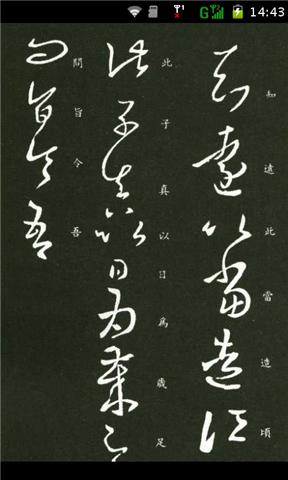 G 14:43
知遠此當造頃
此子真以日爲歲足
問旨令吾